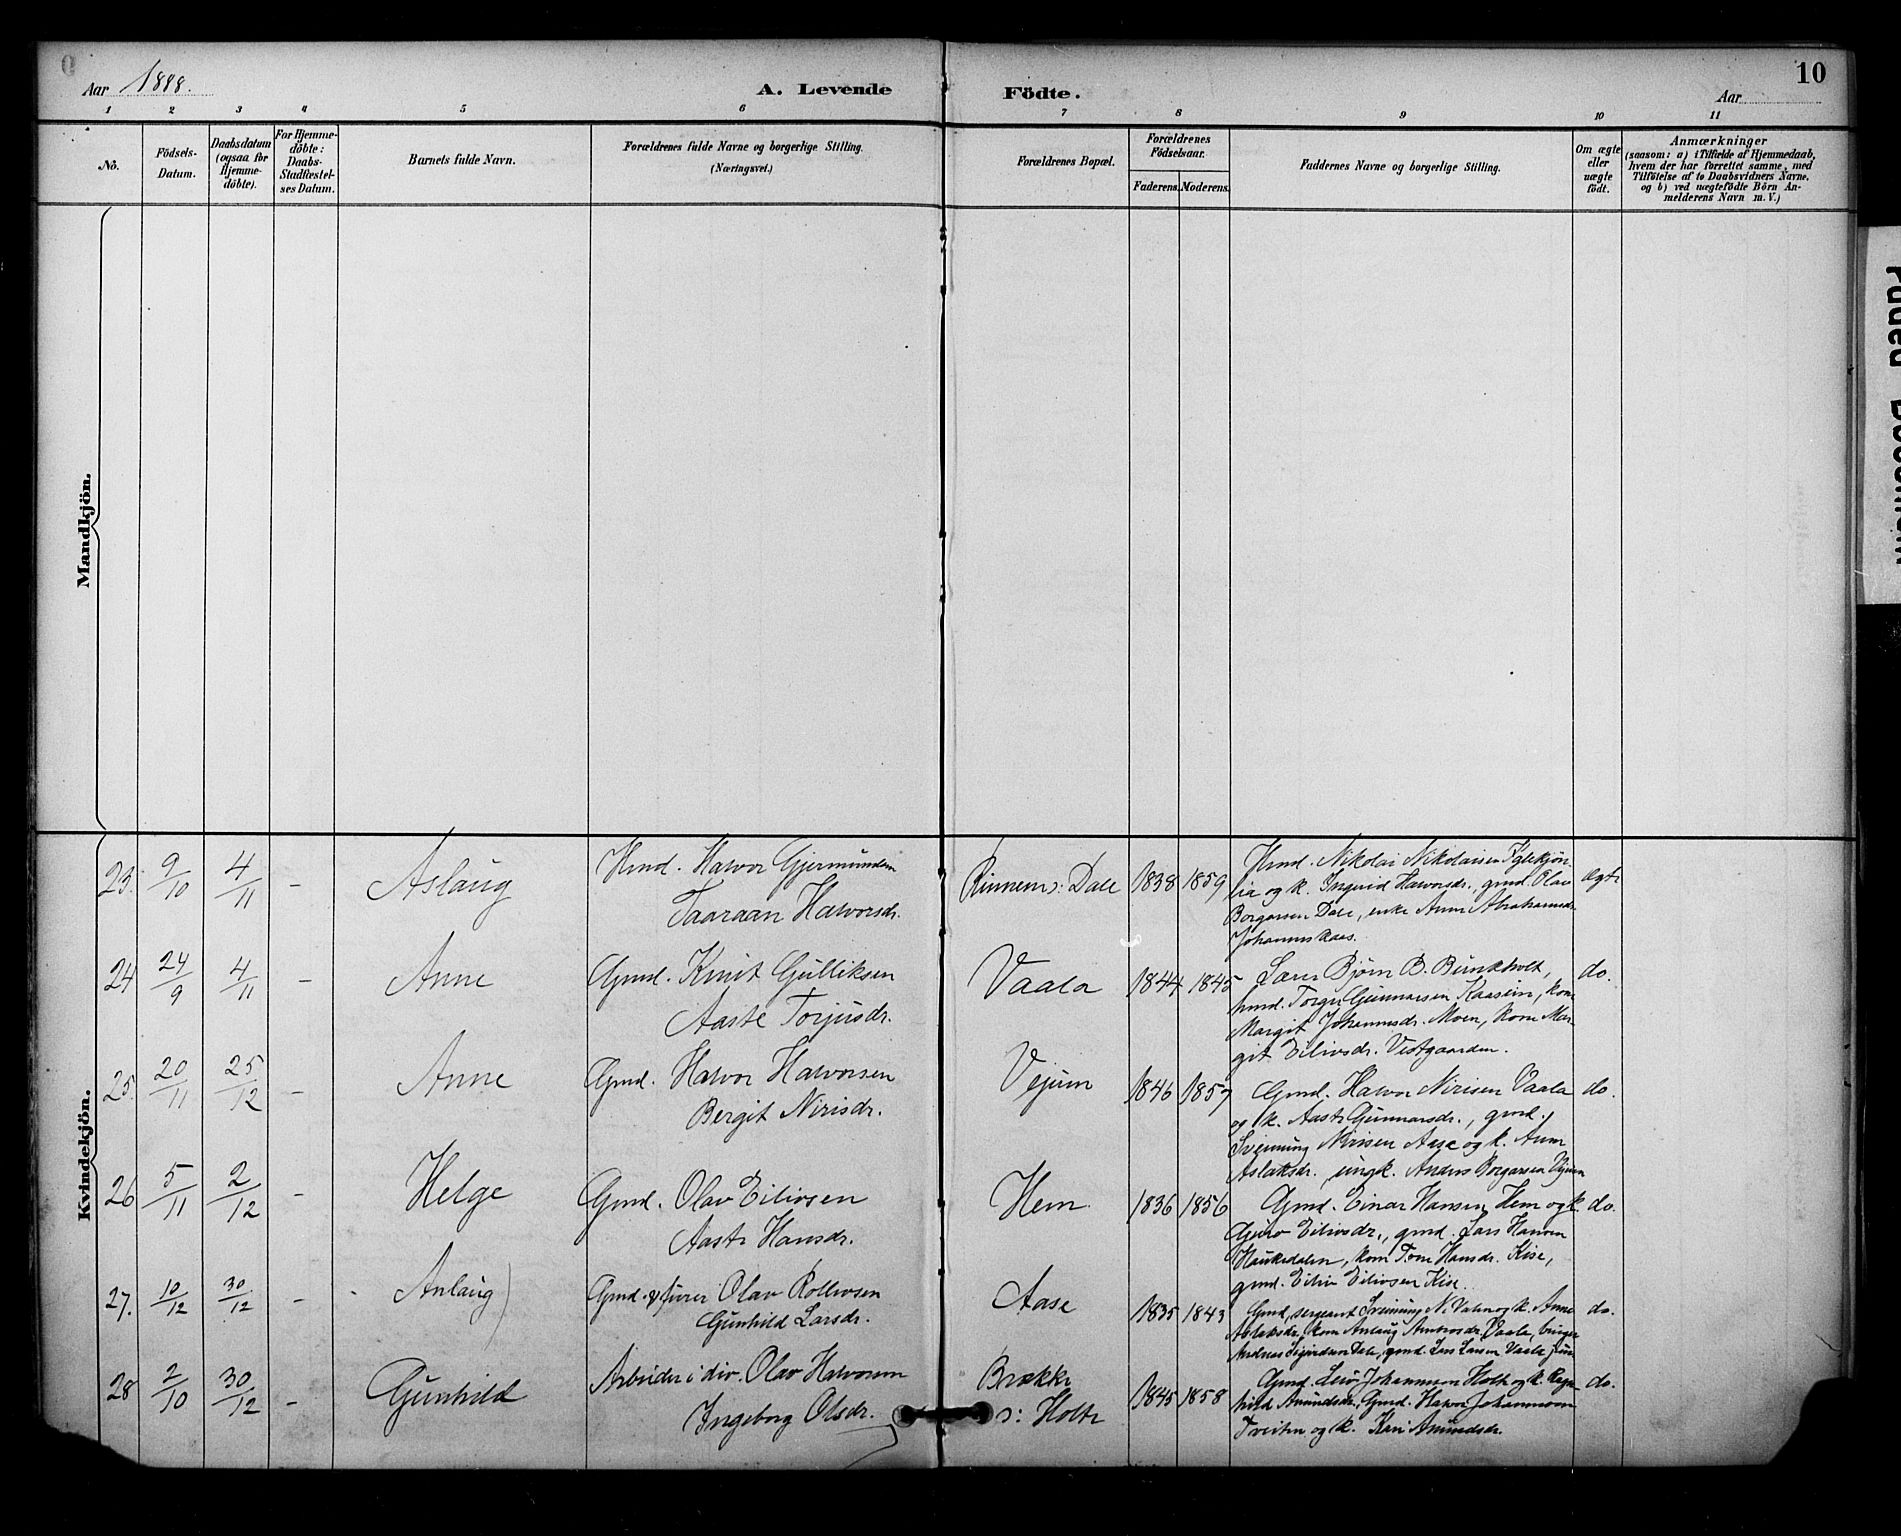 10
Aar 1888.
A. Levende Födte.
Aar
1 2 3 4 5 6 7 8 9 10 11
No.
Födsels-
Datum.
Daabsdatum
(ogsaa for
Hjemme-
döbte).
For Hjemme-
döbte:
Daabs-
Stadfæstel-
ses Datum.
Barnets fulde Navn.
Forældrenes fulde Navne og borgerlige Stilling.
(Næringsvei.)
Forældrenes Bopæl.
Forældrenes
Födselsaar.
Faderens. Moderens.
Faddernes Navne og borgerlige Stilling.
Om ægte
eller
uægte
födt.
Anmærkninger
(saasom: a) i Tilfælde af Hjemmedaab,
hvem der har forrettet samme, med
Tilföielse af to Daabsvidners Navne,
og b) ved uægtefödte Börn An-
melderens Navn m. V.)
Mandkjön.
Kvindekjön.
23. 9/10 4/11 - Aslaug
Hmd. Halvor Gjermundsen
Taaraan Halvorsdr.
Rinnem s: Dale 1838 1859
Hmd. Nikolai Nikolaisen Iglekjøn-
lia og k. Ingrid Halvorsdr., gmd. Olav
Borgarsen Dale, enke Anne Abrahamsdr.
Johannskaas.
ægte
24 24/9 4/11 - Anne
Gmd. Knut Gulliksen
Aaste Torjusdr.
Vaala 1844 1845
Lærer Bjørn B. Bunkholt,
hmd. Torger Gunnarsen Kaasein, kone
Margit Johannsdr. Moen, kone Mar-
git Eilivsdr. Vestgaarden.
do.
25. 20/11 25/12 - Anne
Gmd. Halvor Halvorsen
Bergit Nirisdr.
Vejum 1846 1857
Gmd. Halvor Nirisen Vaala
og k. Aaste Gunnarsdr., gmd.
Sveinung Nirisen Aase og k. Anne
Aslaksdr., ungk. Anders Borgarsen Vejum
do.
26 5/11 2/12 - Helge
Gmd. Olav Eilivsen
Aaste Hansdr.
Hem 1836 1856
Gmd. Einar Hansen Hem og k.
Gjero Eilivsdr., gmd. Lars Hansen
Haukedalen, kone Tone Hansdr. Kise,
gmd. Eiliv Eilivsen Kise.
do.
27. 10/12 30/12 - Anlaug
Gmd. & furer Olav Rollevsen
Gunhild Larsdr.
Aase 1835 1843
Gmd, sergeant Sveinung N. Vala og k. Anne
Aslaksdr, kone Anlaug Ambrosdr. Vaala,
Andreas Sigurdsen Dale, gmd. Lars Larsen Vaala
do.
28 2/10 30/12 - Gunhild
Arbeider i div. Olav Halvorsen
Ingeborg Olsdr.
Brække
s: Holte 1845 1858
Gmd. Leiv Johannsen Holte og k. Ragn-
hild Amundsdr, Gmd. Halvor Johannsen
Tveiten og k. Kari Amundsdr.
do.